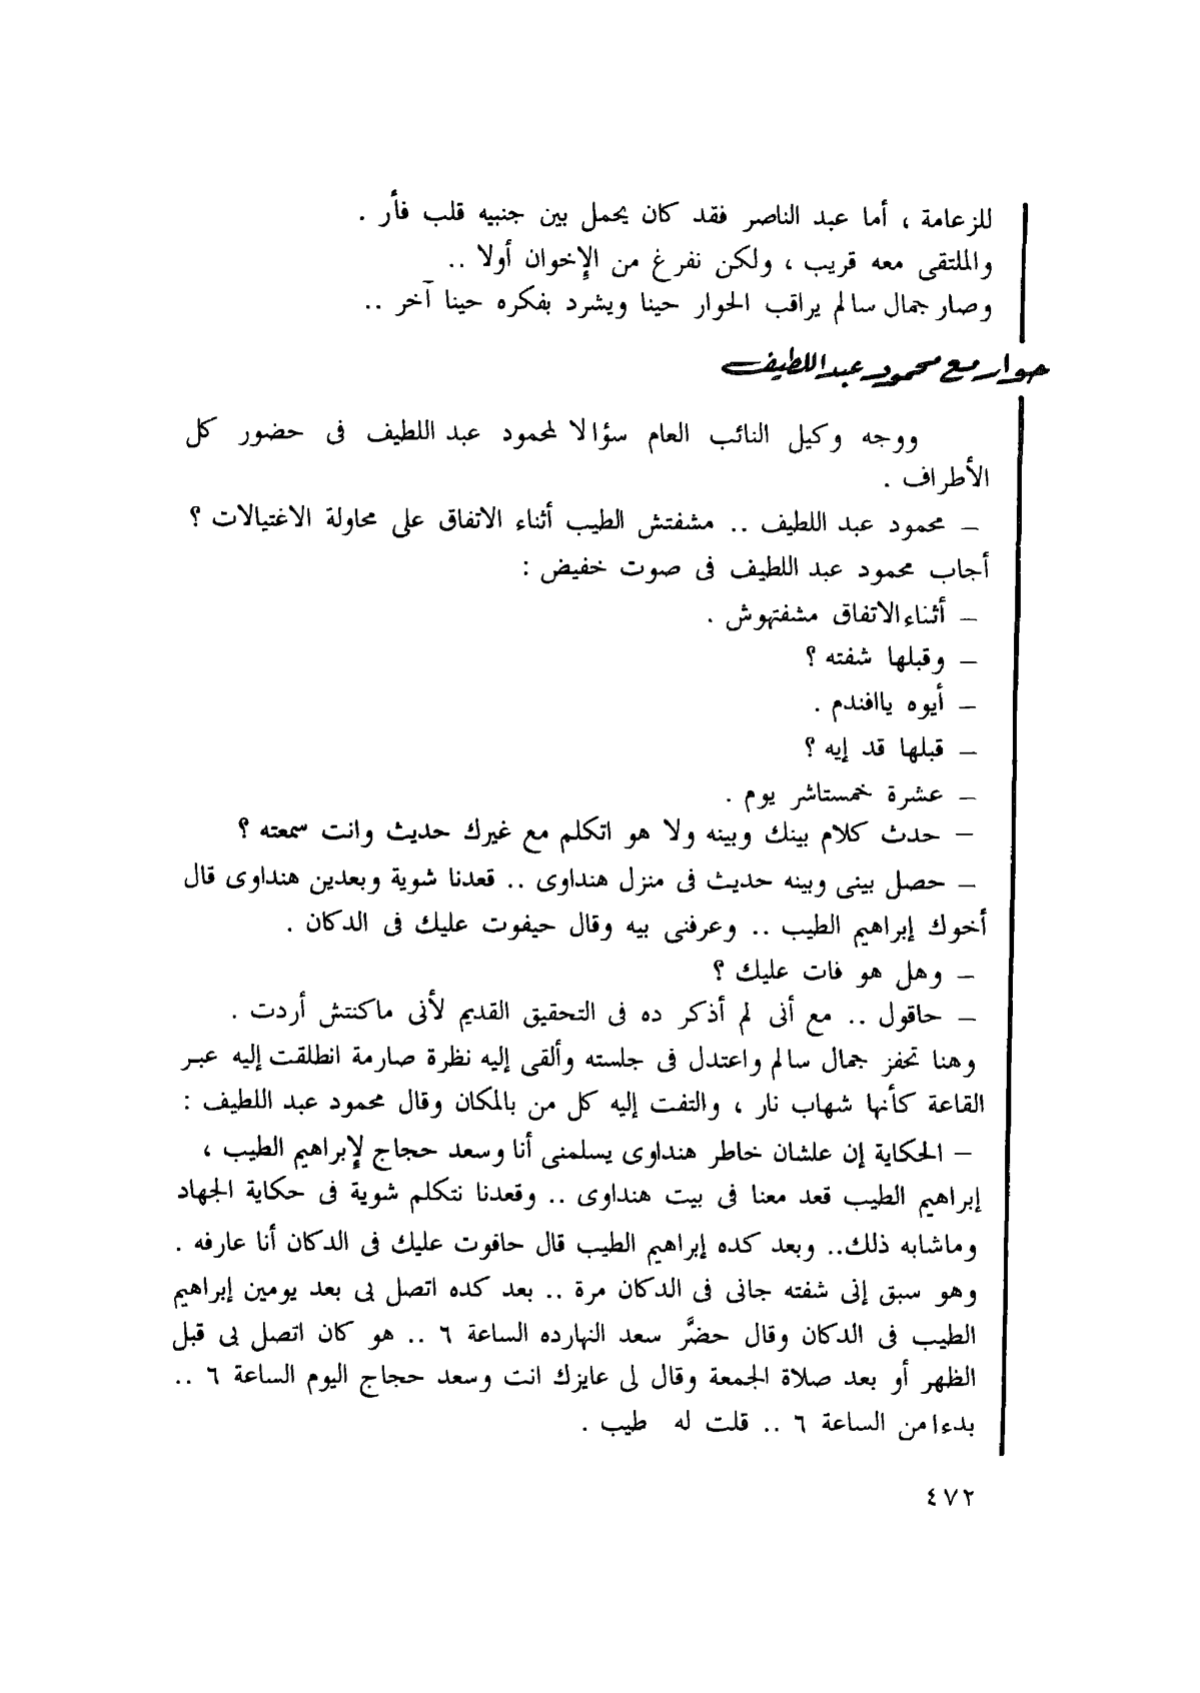 للزعامة ، أما عبد الناصر فقد كان يحمل بين جنبيه قلب فأر .
والملتقى معه قريب ، ولكن نفرغ من الإخوان أولا ..
وصار جمال سالم يراقب الحوار حينا ويشرد بفكره حينا آخر ..
حوار مع محمود عبد اللطيف
ووجه وكيل النائب العام سؤالا لمحمود عبد اللطيف فى حضور كل
الأطراف .
– محمود عبد اللطيف .. مشفتش الطيب أثناء الاتفاق على محاولة الاغتيالات ؟
أجاب محمود عبد اللطيف فى صوت خفيض :
– أثناء الاتفاق مشفتهوش .
– وقبلها شفته ؟
– أيوه ياافندم .
– قبلها قد إيه ؟
– عشرة خمستاشر يوم .
– حدث كلام بينك وبينه ولا هو اتكلم مع غيرك حديث وانت سمعته ؟
– حصل بينى وبينه حديث فى منزل هنداوى .. قعدنا شوية وبعدين هنداوى قال
أخوك إبراهيم الطيب .. وعرفنى بيه وقال حيفوت عليك فى الدكان .
– وهل هو فات عليك ؟
– حاقول .. مع أنى لم أذكر ده فى التحقيق القديم لأنى ماكنتش أردت .
وهنا تحفز جمال سالم واعتدل فى جلسته وألقى إليه نظرة صارمة انطلقت إليه عبر
القاعة كأنها شهاب نار ، والتفت إليه كل من بالمكان وقال محمود عبد اللطيف :
– الحكاية إن علشان خاطر هنداوى يسلمنى أنا وسعد حجاج لإبراهيم الطيب ،
إبراهيم الطيب قعد معنا فى بيت هنداوى .. وقعدنا نتكلم شوية فى حكاية الجهاد
وماشابه ذلك.. وبعد كده إبراهيم الطيب قال حافوت عليك فى الدكان أنا عارفه .
وهو سبق إنى شفته جانى فى الدكان مرة .. بعد كده اتصل بى بعد يومين إبراهيم
الطيب فى الدكان وقال حضَّر سعد النهارده الساعة ٦ .. هو كان اتصل بى قبل
الظهر أو بعد صلاة الجمعة وقال لى عايزك انت وسعد حجاج اليوم الساعة ٦ ..
بدءا من الساعة ٦ .. قلت له طيب .
٤٧٢